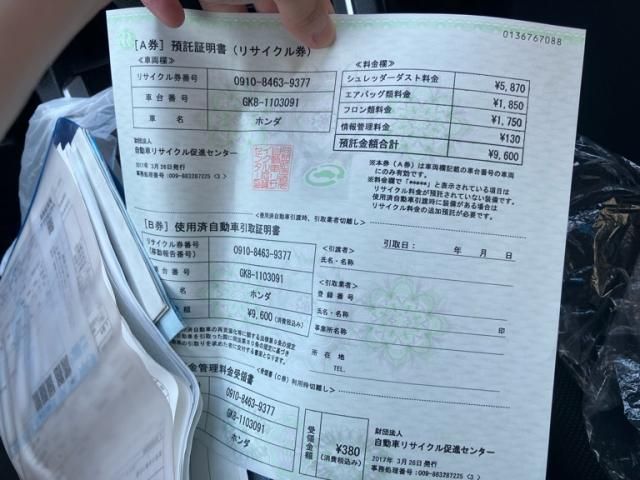 0136767088
[A券] 預託証明書(リサイクル券)
<車両欄>
リサイクル券番号 0910-8463-9377
車台番号 GK8-1103091
車名 ホンダ
財団法人
自動車リサイクル促進センター
2017年 3月26日発行
事務処理番号:009-883287225 <3>
<料金欄>
シュレッダーダスト料金 ¥5,870
エアバッグ類料金 ¥1,850
フロン類料金 ¥1,750
情報管理料金 ¥130
預託金額合計 ¥9,600
※本券(A券)は車両欄記載の車台番号の車両
にのみ有効です。
※料金欄で「*****」と表示されている項目は
リサイクル料金が預託されていない装備です。
使用済自動車引渡時に装備がある場合は
リサイクル料金の追加預託が必要です。
<使用済自動車引渡時、引取業者切離し>
[B券] 使用済自動車引取証明書
リサイクル券番号
(移動報告番号) 0910-8463-9377
車台番号 GK8-1103091
名 ホンダ
額 ¥9,600(消費税込み)
引取日: 年 月 日
<引渡者>
氏名・名称
<引取業者>
登録番号
氏名・名称 印
事業所名称
所在地
TEL.
<受領書(C券)利用時切離し>
金管理料金受領書
0910-8463-9377
GK8-1103091
ホンダ
受領金額 ¥380
(消費税込み)
財団法人
自動車リサイクル促進センター
2017年 3月26日発行
事務処理番号:009-883287225 <3>